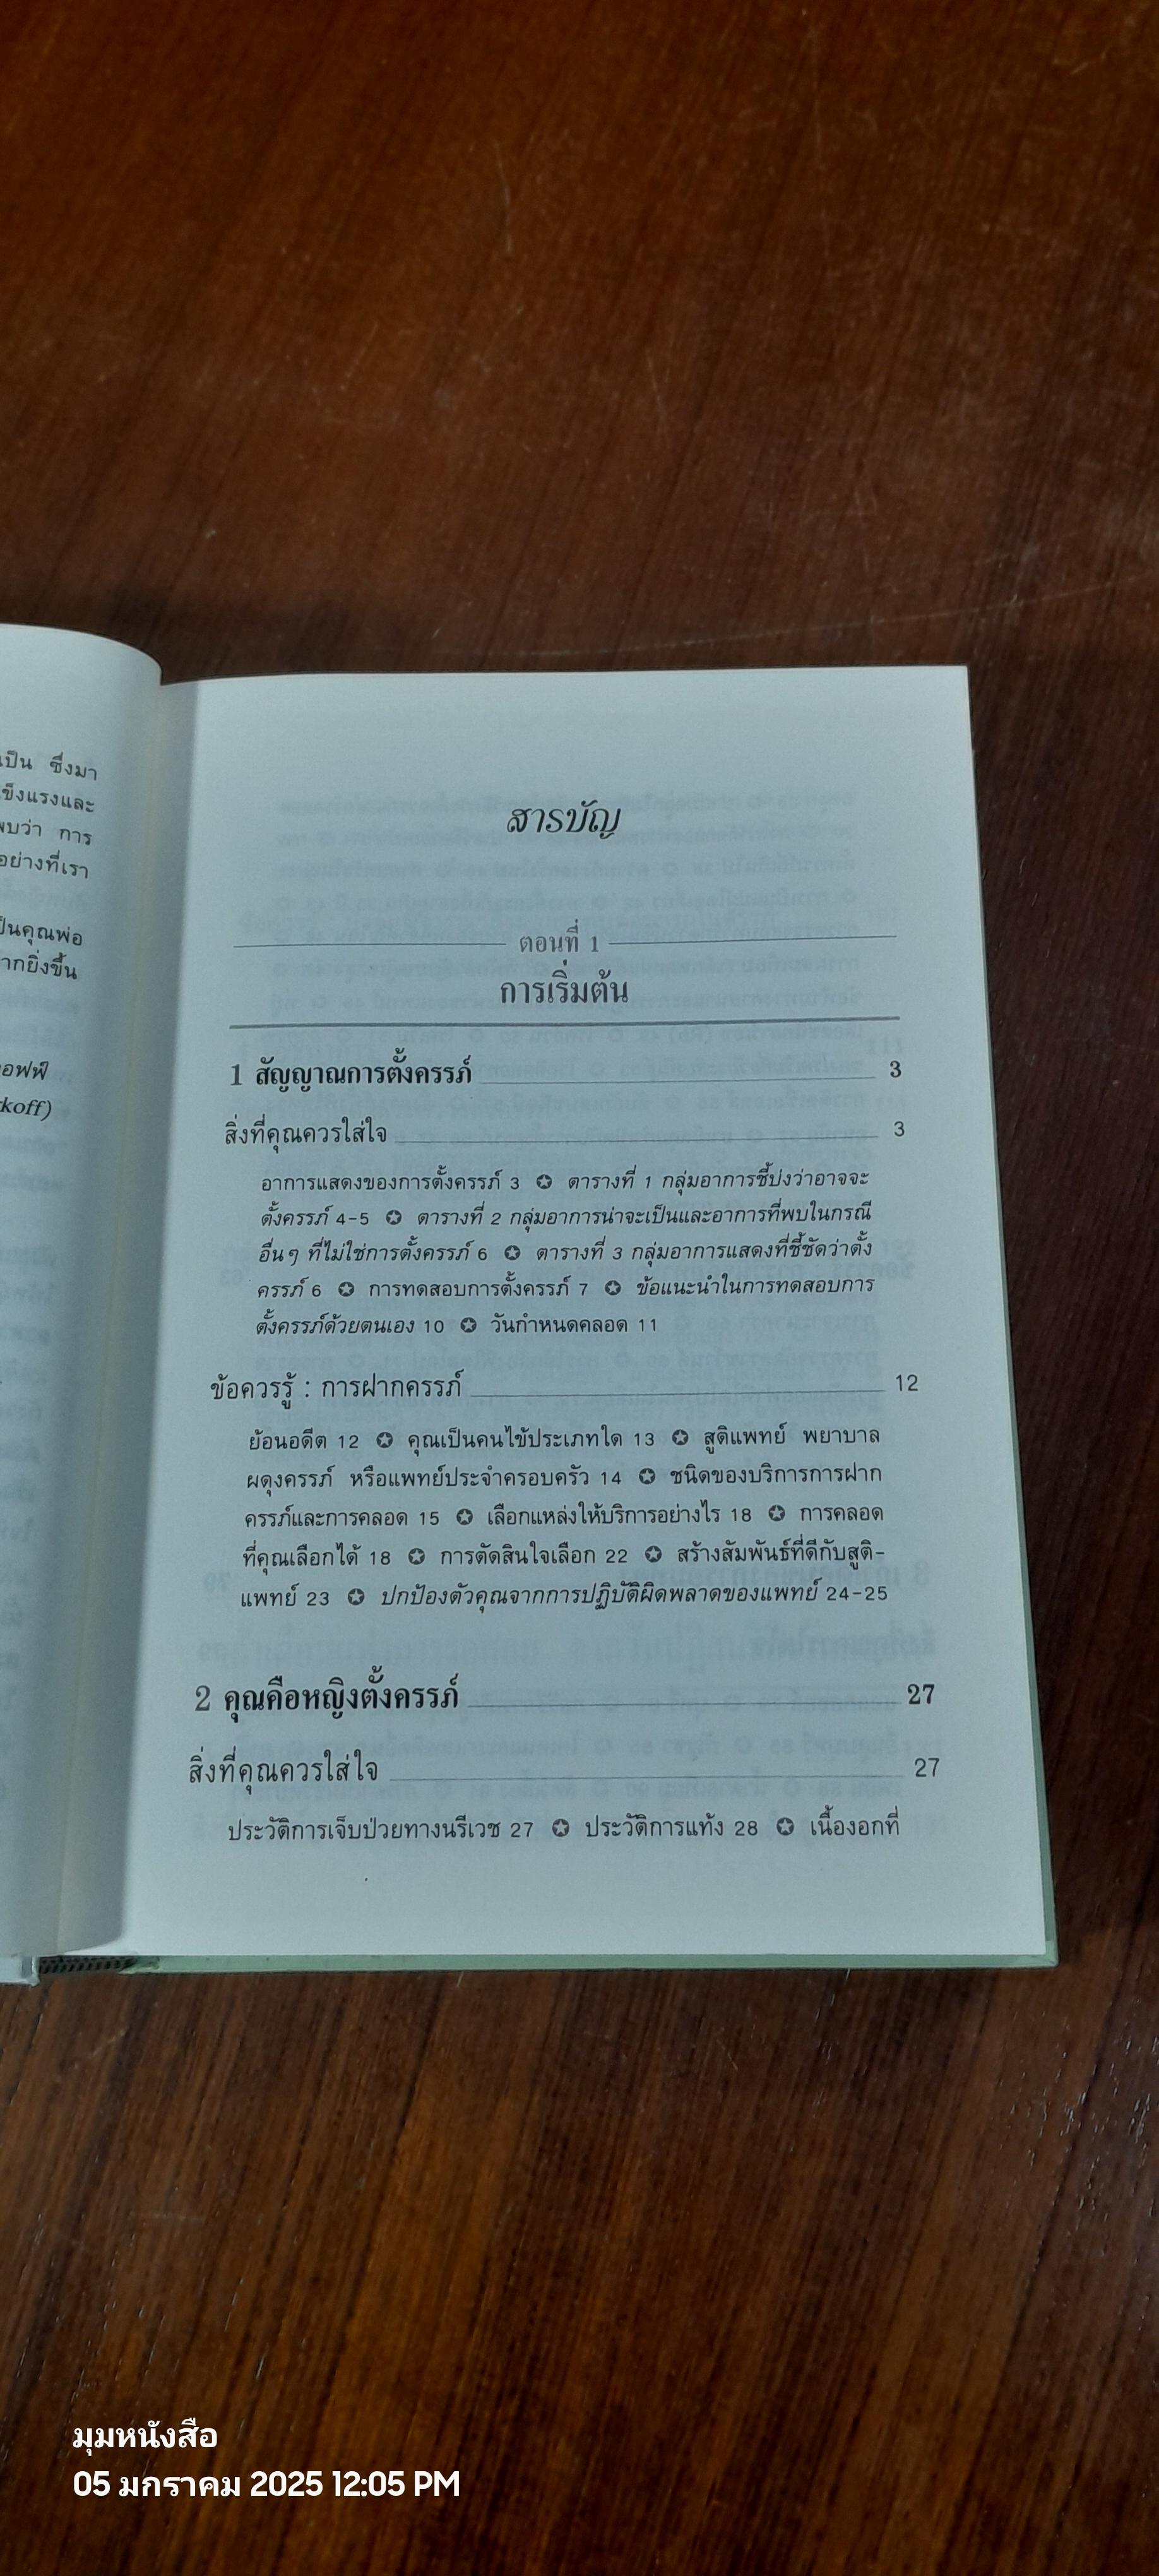 เป็น ซึ่งมา
แข็งแรงและ
พบว่า การ
อย่างที่เรา
เป็นคุณพ่อ
มากยิ่งขึ้น
koff)
สารบัญ
ตอนที่ 1
การเริ่มต้น
1 สัญญาณการตั้งครรภ์ 3
สิ่งที่คุณควรใส่ใจ 3
อาการแสดงของการตั้งครรภ์ 3 ✪ ตารางที่ 1 กลุ่มอาการชี้บ่งว่าอาจจะ
ตั้งครรภ์ 4-5 ✪ ตารางที่ 2 กลุ่มอาการน่าจะเป็นและอาการที่พบในกรณี
อื่นๆ ที่ไม่ใช่การตั้งครรภ์ 6 ✪ ตารางที่ 3 กลุ่มอาการแสดงที่ชี้ชัดว่าตั้ง
ครรภ์ 6 ✪ การทดสอบการตั้งครรภ์ 7 ✪ ข้อแนะนำในการทดสอบการ
ตั้งครรภ์ด้วยตนเอง 10 ✪ วันกำหนดคลอด 11
ข้อควรรู้ : การฝากครรภ์ 12
ย้อนอดีต 12 ✪ คุณเป็นคนไข้ประเภทใด 13 ✪ สูติแพทย์ พยาบาล
ผดุงครรภ์ หรือแพทย์ประจำครอบครัว 14 ✪ ชนิดของบริการการฝาก
ครรภ์และการคลอด 15 ✪ เลือกแหล่งให้บริการอย่างไร 18 ✪ การคลอด
ที่คุณเลือกได้ 18 ✪ การตัดสินใจเลือก 22 ✪ สร้างสัมพันธ์ที่ดีกับสูติ-
แพทย์ 23 ✪ ปกป้องตัวคุณจากการปฏิบัติผิดพลาดของแพทย์ 24-25
2 คุณคือหญิงตั้งครรภ์ 27
สิ่งที่คุณควรใส่ใจ 27
ประวัติการเจ็บป่วยทางนรีเวช 27 ✪ ประวัติการแท้ง 28 ✪ เนื้องอกที่
มุมหนังสือ
05 มกราคม 2025 12:05 PM